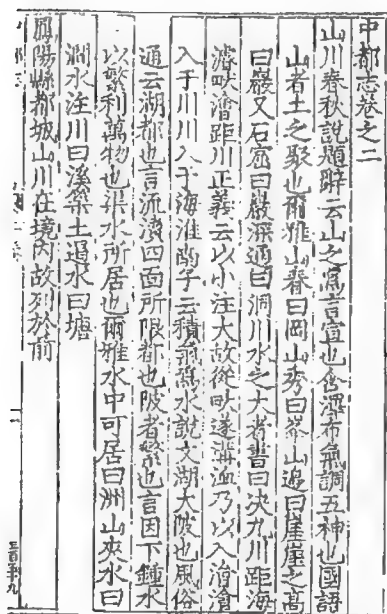 中都志卷之二
山川春秋說題辭云山之爲言宣也含澤布氣調五神也國語
山者土之聚也爾雅山脊曰岡山秀曰峯山邉曰崖崖之髙
曰巖又石窟曰巖深通曰洞川水之大者書曰决九川距海
濬畎澮距川正義云以小注大故從畎遂溝洫乃以入澮澮
入于川川入于海淮南子云積氣爲水說文湖大陂也風俗
通云湖都也言流瀆四面所限都也陂者繁也言因下鍾水
以繁利萬物也渠水所居也爾雅水中可居曰洲山夾水曰
澗水注川曰溪築土遏水曰塘
鳳陽縣都城山川在境內故列於前